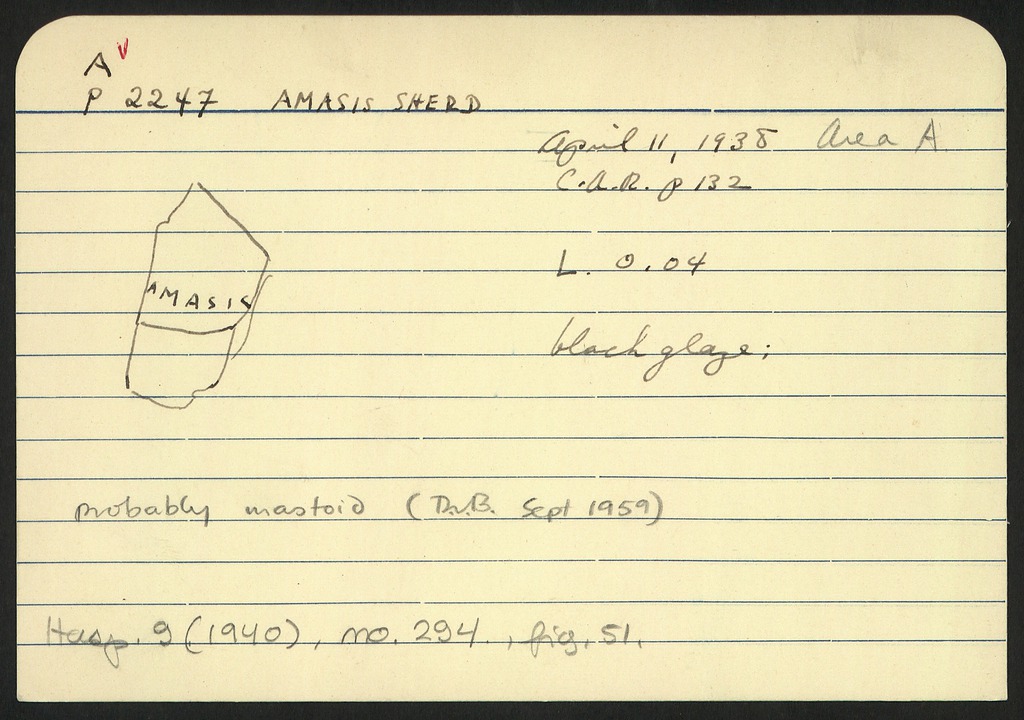 A ✓
P 2247 AMASIS SHERD
April 11, 1938 Area A
C.A.R. p 132
L. 0.04
AMASIS
black glaze;
probably mastoid (D.v.B. Sept 1959)
Hesp. 9 (1940), no. 294., fig. 51.